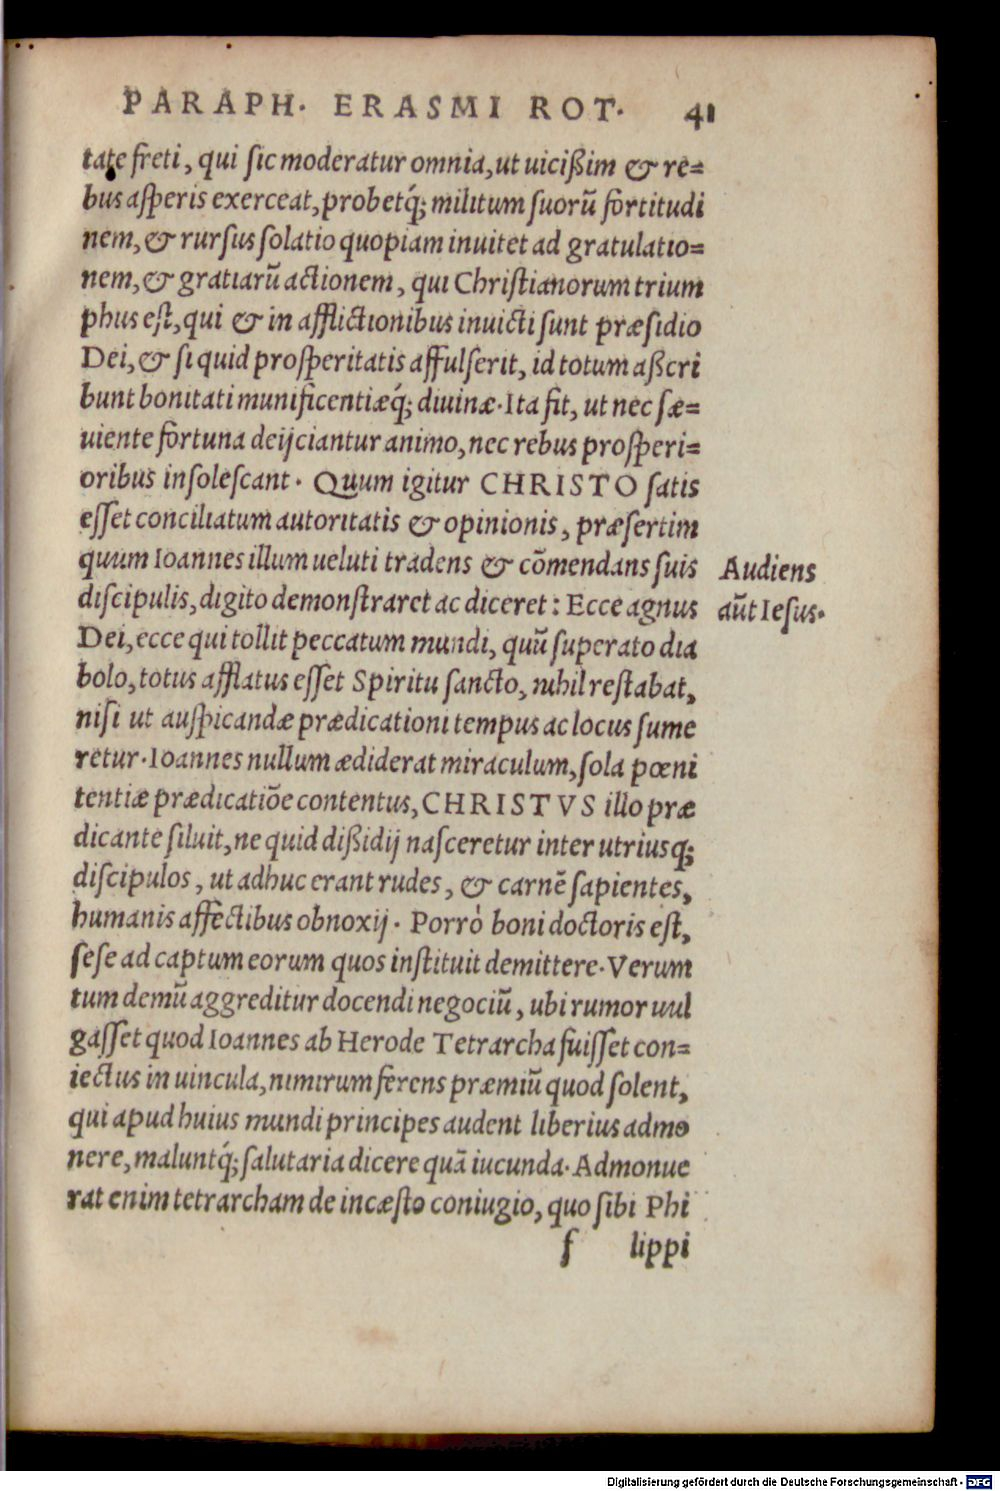 PARAPH. ERASMI ROT. 41
tate freti, qui sic moderatur omnia, ut uicißim & re=
bus asperis exerceat, probetq́; militum suorũ fortitudi
nem, & rursus solatio quopiam inuitet ad gratulatio=
nem, & gratiarũ actionem, qui Christianorum trium
phus est, qui & in afflictionibus inuicti sunt præsidio
Dei, & si quid prosperitatis affulserit, id totum aßcri
bunt bonitati munificentiæq́; diuinæ. Ita fit, ut nec sæ=
uiente fortuna deijciantur animo, nec rebus prosperi=
oribus insolescant. Quum igitur CHRISTO satis
esset conciliatum autoritatis & opinionis, præsertim
quum Ioannes illum ueluti tradens & cõmendans suis
discipulis, digito demonstraret ac diceret: Ecce agnus
Dei, ecce qui tollit peccatum mundi, quũ superato dia
bolo, totus afflatus esset Spiritu sancto, nihil restabat,
nisi ut auspicandæ prædicationi tempus ac locus sume
retur. Ioannes nullum ædiderat miraculum, sola pœni
tentiæ prædicatiõe contentus, CHRISTVS illo præ
dicante siluit, ne quid dißidij nasceretur inter utriusq;
discipulos, ut adhuc erant rudes, & carnẽ sapientes,
humanis affectibus obnoxij. Porrò boni doctoris est,
sese ad captum eorum quos instituit demittere. Verum
tum demũ aggreditur docendi negociũ, ubi rumor uul
gasset quod Ioannes ab Herode Tetrarcha fuisset con=
iectus in uincula, nimirum ferens præmiũ quod solent,
qui apud huius mundi principes audent liberius admo
nere, maluntq́; salutaria dicere quã iucunda. Admonue
rat enim tetrarcham de incæsto coniugio, quo sibi Phi
f lippi
Audiens
aũt Iesus.
Digitalisierung gefördert durch die Deutsche Forschungsgemeinschaft - DFG